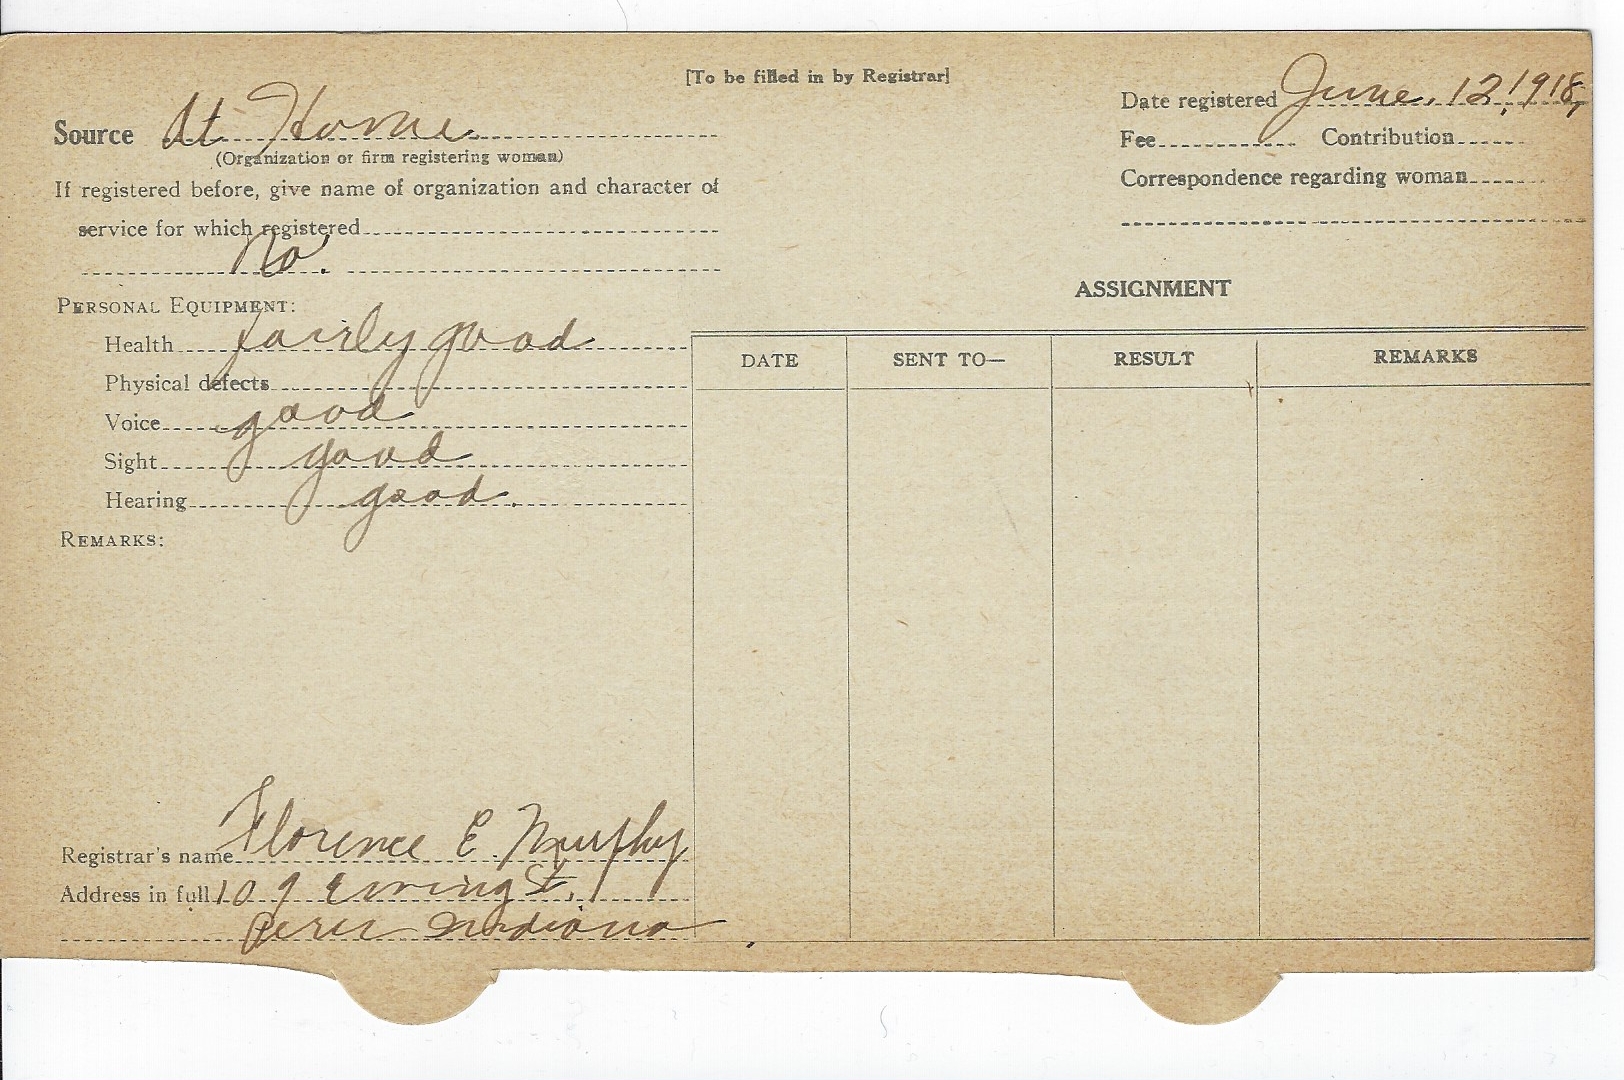 [To be filled in by Registrar]
Source At Home
(Organization or firm registering woman)
If registered before, give name of organization and character of
service for which registered
No.
PERSONAL EQUIPMENT:
Health fairly good
Physical defects
Voice good
Sight good
Hearing good.
REMARKS:
Registrar's name Florence E. Murphy
Address in full 109 Ewing St.
Peru Indiana
Date registered June. 12, 1918,
Fee Contribution
Correspondence regarding woman
ASSIGNMENT
DATE SENT TO— RESULT REMARKS